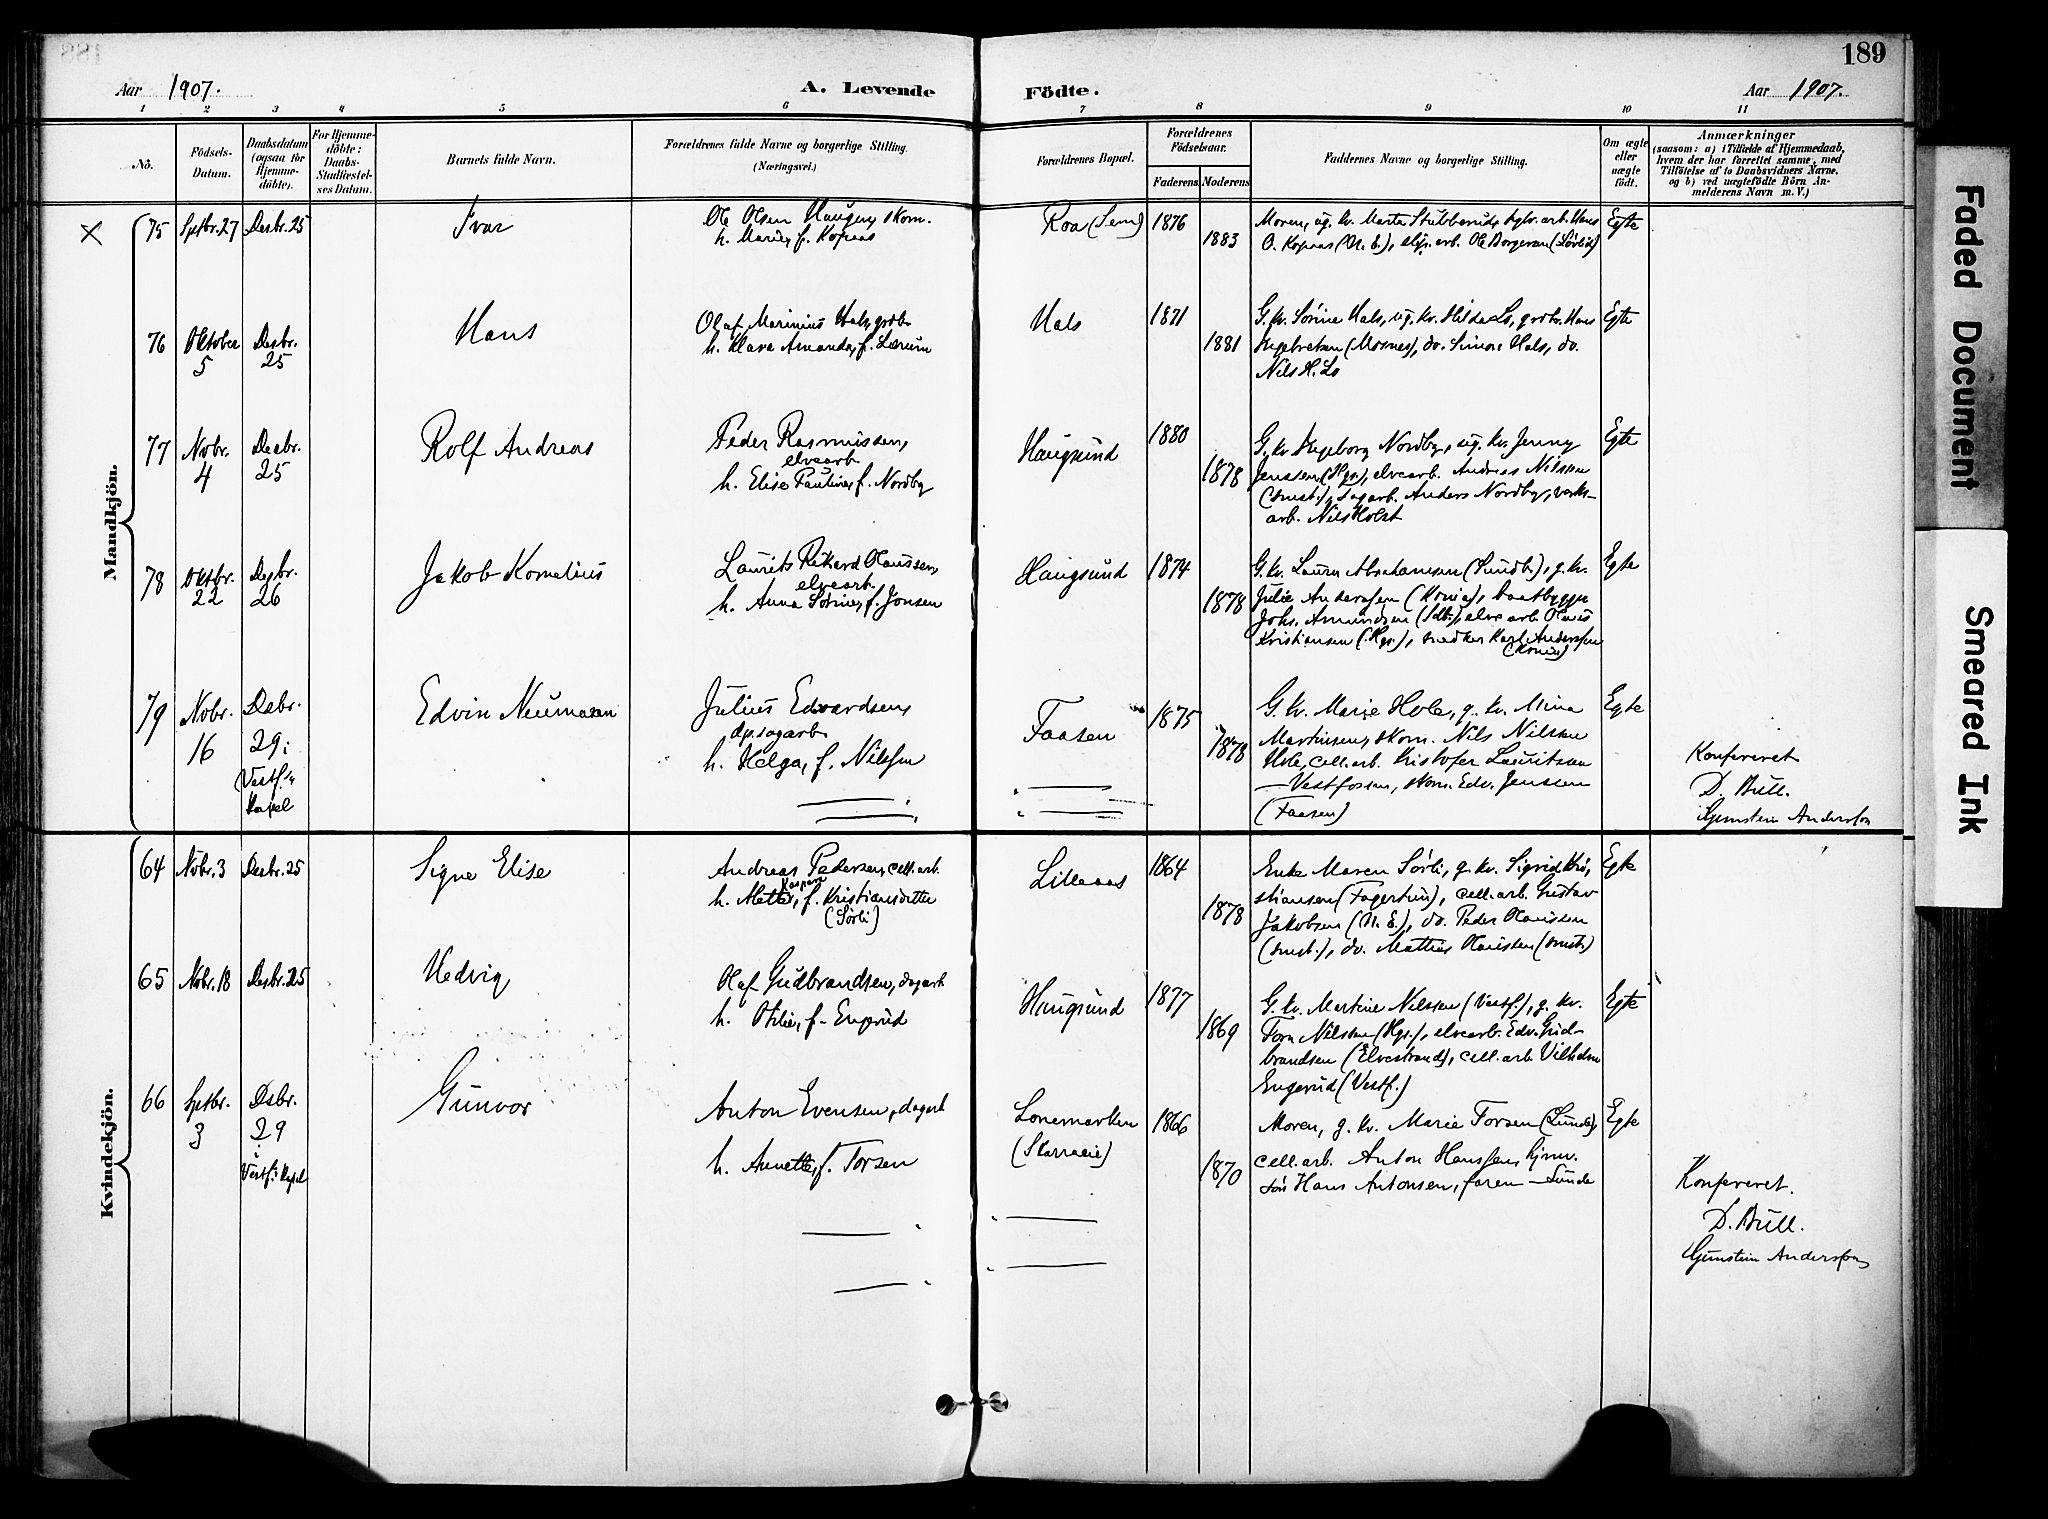 189
Aar 1907.
A. Levende Födte.
Aar 1907.
1 2 3 4 5 6 7 8 9 10 11
No.
Födsels-Datum.
Daabsdatum (ogsaa for Hjemme-döbte).
For Hjemme-döbte: Daabs-Stadfæstel-ses Datum.
Barnets fulde Navn.
Forældrenes fulde Navne og borgerlige Stilling.
(Næringsvei.)
Forældrenes Bopæl.
Forældrenes Födselsaar.
Faderens Moderens
Faddernes Navne og borgerlige Stilling.
Om ægte eller uægte födt.
Anmærkninger
(saasom: a) i Tilfælde af Hjemmedaab,
hvem der har forrettet samme, med
Tilföielse af to Daabsvidners Navne,
og b) ved uægtefödte Börn An-
melderens Navn m. V.)
Mandkjön.
75 Sptbr. 27 Desbr. 25
Ivar
Ole Olsen Haugen, skom.
h. Marie, f. Kopaas
Roa (Sem)
1876
1883
Moren, ug. kv. Marta Stubberud, arb. Hans
O. Kopaas (N. E.), arb. Ole Borgersen (Sørli)
Egte
76 Oktober 5 Desbr. 25
Hans
Olaf Marinius Hals, grdbr.
h. Klara Amanda, f. Lærum
Hals
1871
1881
G. kv. Sørine Hals, ug. kv. Hilda Lo, grdbr. Hans
Ingebretsen (Mosnes), do. Simon Hals, do.
Nils H. Lo
Egte
77 Novbr. 4 Desbr. 25
Rolf Andreas
Peder Rasmussen,
elvearb.
h. Elise Pauline, f. Nordby
Haugsund
1880
1878
G. kv. Ingeborg Nordby, ug. kv. Jenny
Jenssen (Hgs.), elvearb. Andreas Nilssen
(smst.), sagarb. Anders Nordby, verks-
arb. Nils Holst
Egte
78 Oktbr. 22 Desbr. 26
Jakob Kornelius
Laurits Rikard Olaussen,
elvearb.
h. Anna Sørine, f. Jonsen
Haugsund
1874
1878
G. kv. Laura Abrahamsen (Sundb.), g. kv.
Julie Anderssen (Krona), baatbygger
Johs. Amundsen (Sdb.), elvearb. Olaus
Kristiansen (Hgs.), snedker Karl Anderssen
(Krona)
Egte
79 Novbr. 16 Desbr. 29 i Vestf.s Kapel
Edvin Neumann
Julius Edvardsen,
dgs. sagarb.
h. Helga, f. Nilssen
Faasen
1875
1878
G. kv. Marie Hole, g. kv. Mina
Martinsen, skom. Nils Nilssen
Hole, cell. arb. Kristofer Lauritsen
— Vestfossen, skom. Edv. Jenssen
(Faasen)
Egte
Konfereret
D. Bull.
Gjemstein Anderssen
Kvindekjön.
64 Novbr. 3 Desbr. 25
Signe Elise
Andreas Pedersen, cell. arb.
h. Mette Kaspara, f. Kristiansdatter
(Sørli)
Lilleaas
1864
1878
Enke Maren Sørli, g. kv. Sigrid Kri-
stiansen (Fagertun), cell. arb. Gustav
Jakobsen (N. E.), do. Peder Olaussen
(smst.), do. Mathias Olaussen (smst.)
Egte
65 Novbr. 18 Desbr. 25
Hedvig
Olaf Gudbrandsen, dagarb.
h. Otilie, f. Engerud
Haugsund
1877
1869
G. kv. Martine Nilssen (Vestf.), g. kv.
Torn Nilssen (Hgs.), elvearb. Edv. Gud-
brandsen (Elvestrand), cell. arb. Vilhelm
Engerud (Vestf.)
Egte
66 Sptbr. 3 Desbr. 29 i Vestf.s Kapel
Gunvor
Anton Evensen, dagarb.
h. Annette, f. Torsen
Lonemarken
1866
1870
Moren, g. kv. Marie Torsen (Lunde),
cell. arb. Anton Hanssen, hjmv.
søn Hans Antonsen, faren — Lunde
Egte
Konfereret.
D. Bull.
Gjemstein Anderssen
Faded Document
Smeared Ink